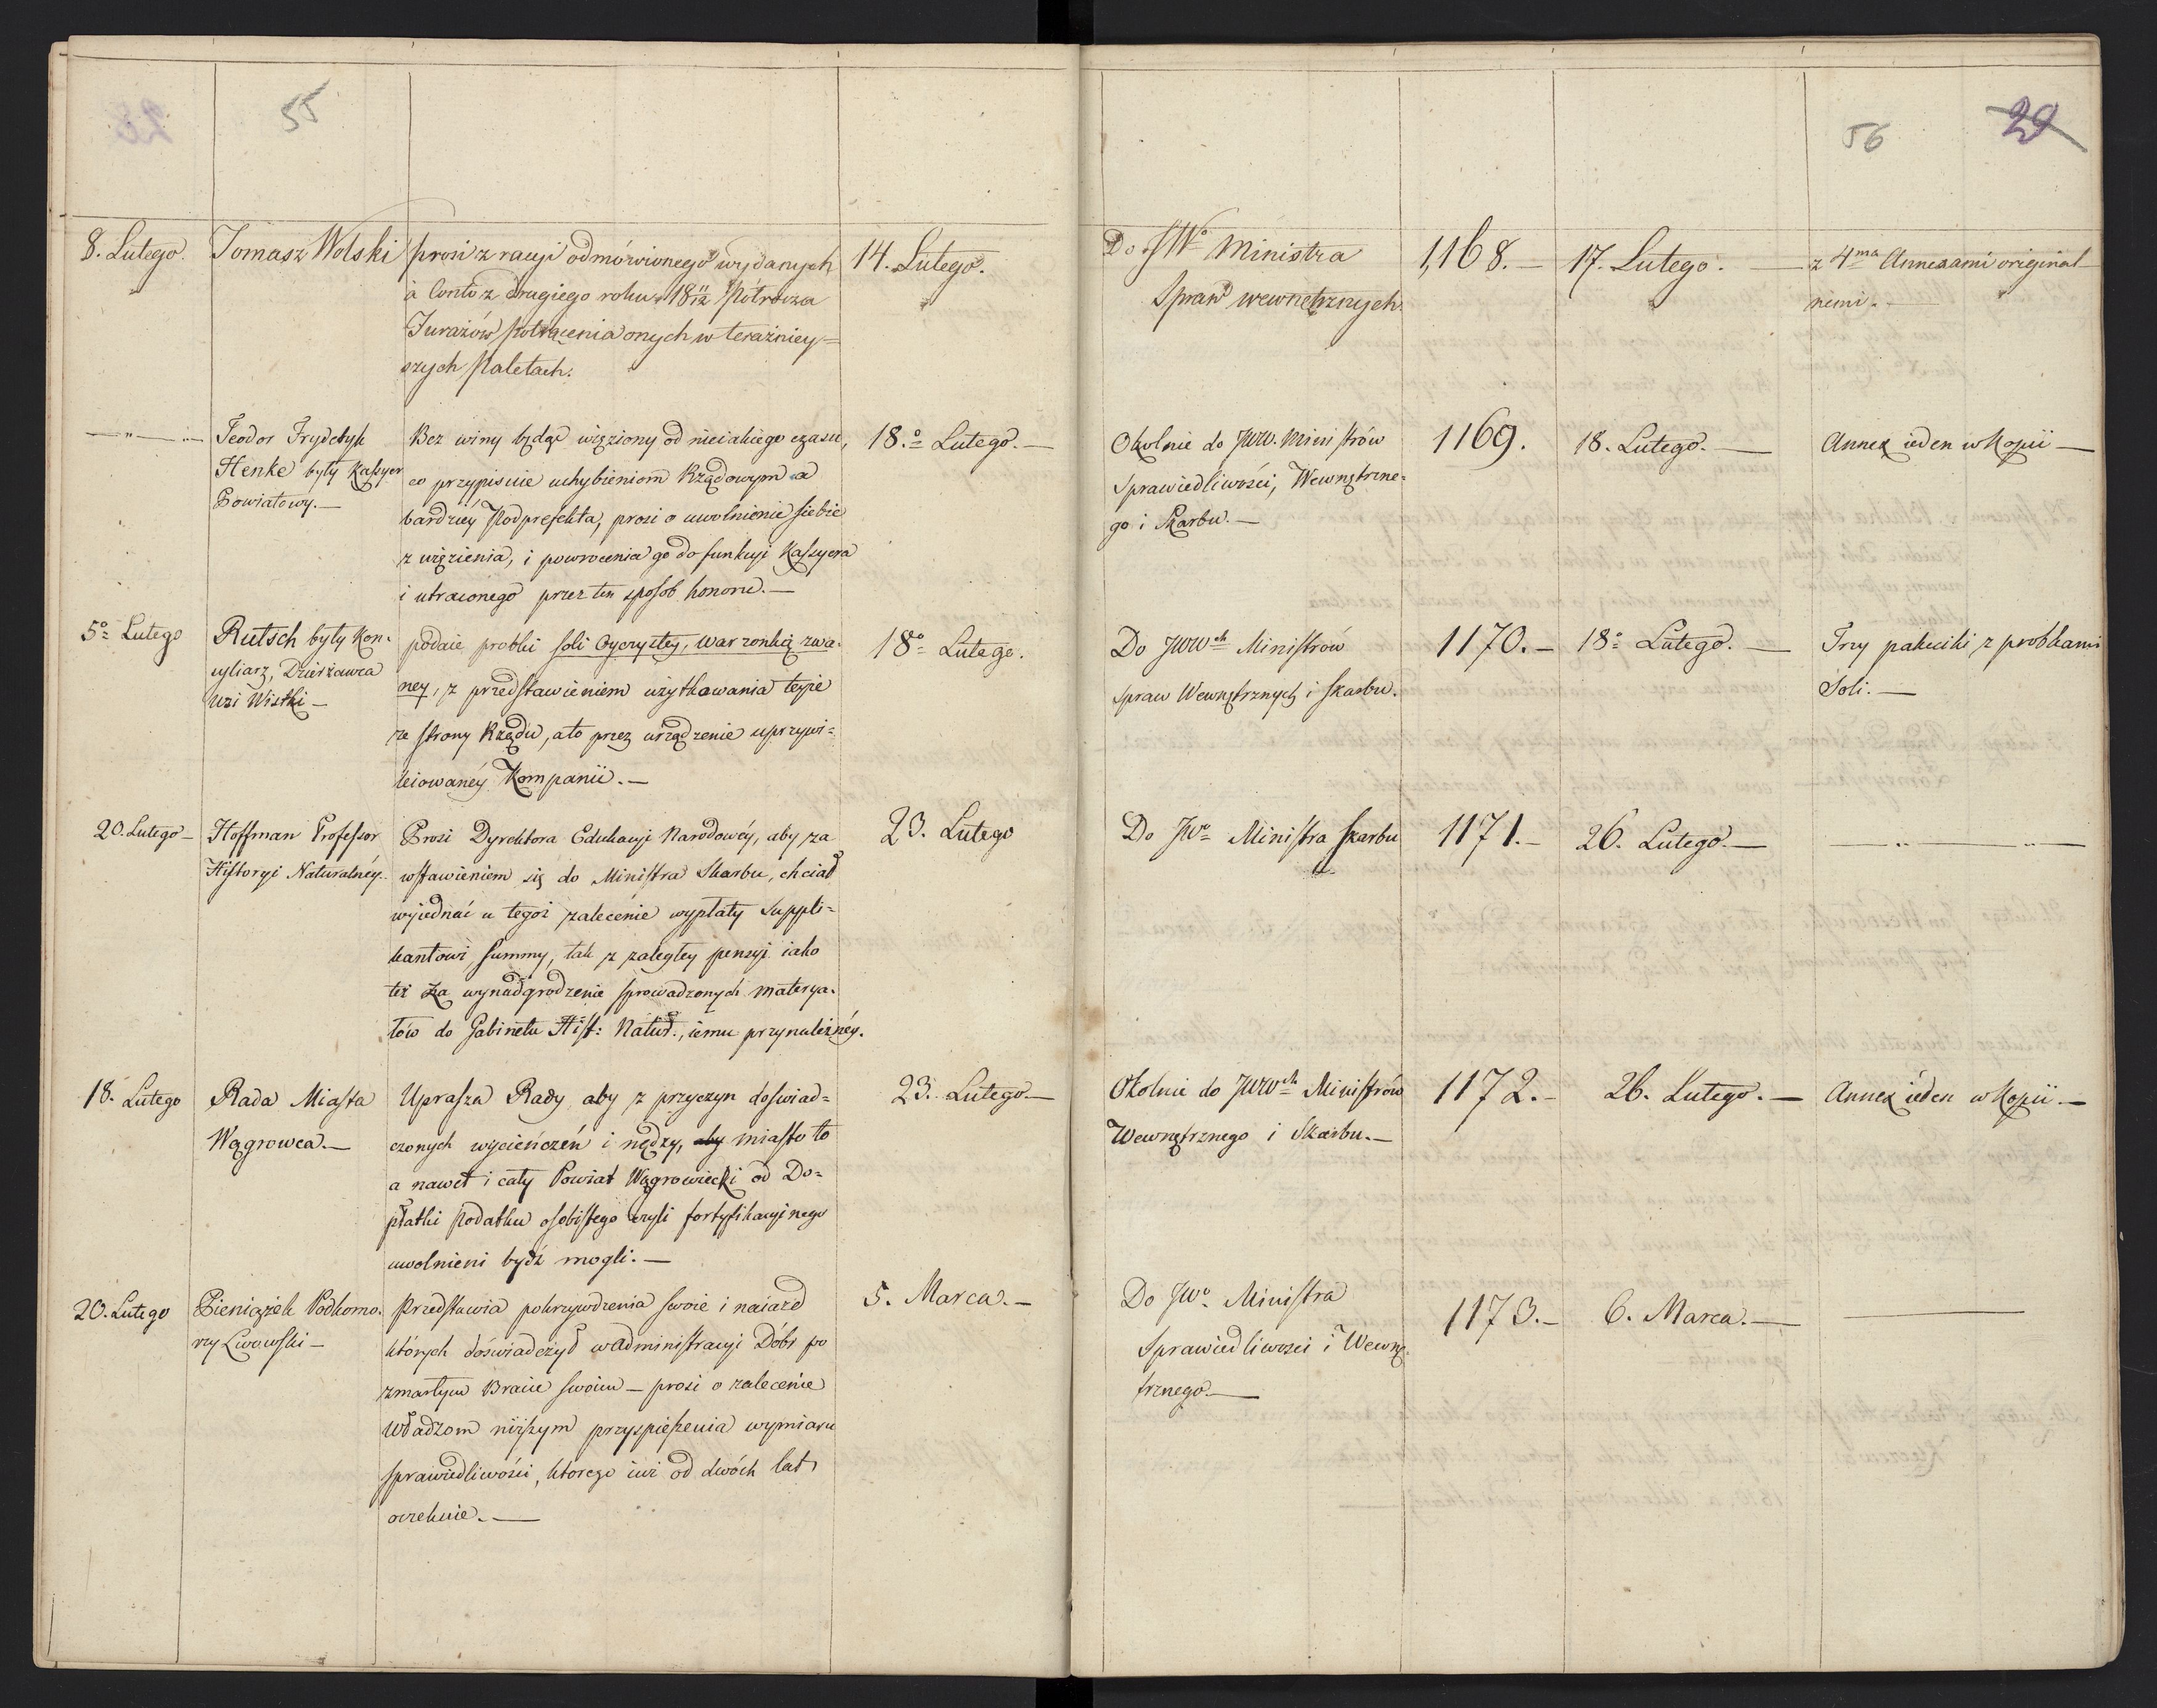 55
56
29
8. Lutego.
Tomasz Wolski
prosi z racyi odmówionego wydanych
à Conto z drugiego roku 18 11/12 Półrocza
Furażów potrącenia onych w teraźniey=
szych Paletach.
14. Lutego.
Do JWo Ministra
Spraw wewnętrznych.
1,168.—
17. Lutego.—
z 4ma Annexami original-
nemi.—
—"—"—
Teodor Frydryk
Henke były Kassyer
Powiatowy.—
Bez winy będąc więziony od nieiakiego czasu,
co przypisuie uchybieniom Rządowym a
bardziey Podprefekta, prosi o uwolnienie siebie
z więzienia, i powrocenia go do funkcyi Kassyera
i utraconego przez ten sposob honoru.—
18.o Lutego.—
Okolnie do JWW. Ministrów
Sprawiedliwości, Wewnętrzne=
go i Skarbu.—
1169.
18. Lutego.—
Annex ieden w Kopii—
5o Lutego
Rutsch były Kon=
syliarz, Dzierżawca
Wsi Wistki—
podaie probki soli Czczystey, warzonką zwa=
ney, z przedstawieniem użytkowania teyże
ze strony Rządu, a to przez urządzenie uprzywi=
leiowanéy Kompanii.—
18o Lutego.
Do JWWch Ministrów
Spraw Wewnętrznych i Skarbu.
1170.—
18o Lutego.—
Trzy pakiciki z probkami
Soli.—
20. Lutego—
Hoffman Professor
Historyi Naturalnéy.
Prosi Dyrektora Edukacyi Narodowéy, aby za
wstawieniem się do Ministra Skarbu, chciał
wyiednać u tegoż zalecénie wypłaty Suppli=
kantowi, summy, tak z zaległey pensyi iako
też za wynadgrodzenie sprowadzonych materya=
łów do Gabinetu Hist: Natur., iemu przynależnéy.
23. Lutego
Do JWo Ministra Skarbu
1171.—
26. Lutego.—
—"—"—
18. Lutego
Rada Miasta
Wągrowca.—
Uprasza Rady aby z przyczyn doświad=
czonych wycieńczeń i nędzy, aby miasto to
a nawet i cały Powiat Wągrowiecki od Do=
płatki Podatku osobistego czyli fortyfikacyinego
uwolnieni bydź mogli.—
23. Lutego.—
Okolnie do JWWch Ministrów
Wewnętrznego i Skarbu.—
1172.—
26. Lutego.—
Annex ieden w Kopii.—
20. Lutego
Pieniążek Podkomo=
rzy Lwowski—
Przedstawia pokrzywdzenia swoie i naiazd
których doświadczył w Administracyi Dóbr po
zmarłym Bracie swoim — prosi o zalecenie
Władzom niższym przyspieszenia wymiaru
sprawiedliwości, ktorego iuż od dwóch lat
oczekuie.—
5. Marca.—
Do JWo Ministra
Sprawiedliwosci i Wewnę=
trznego.—
1173.—
6. Marca.—